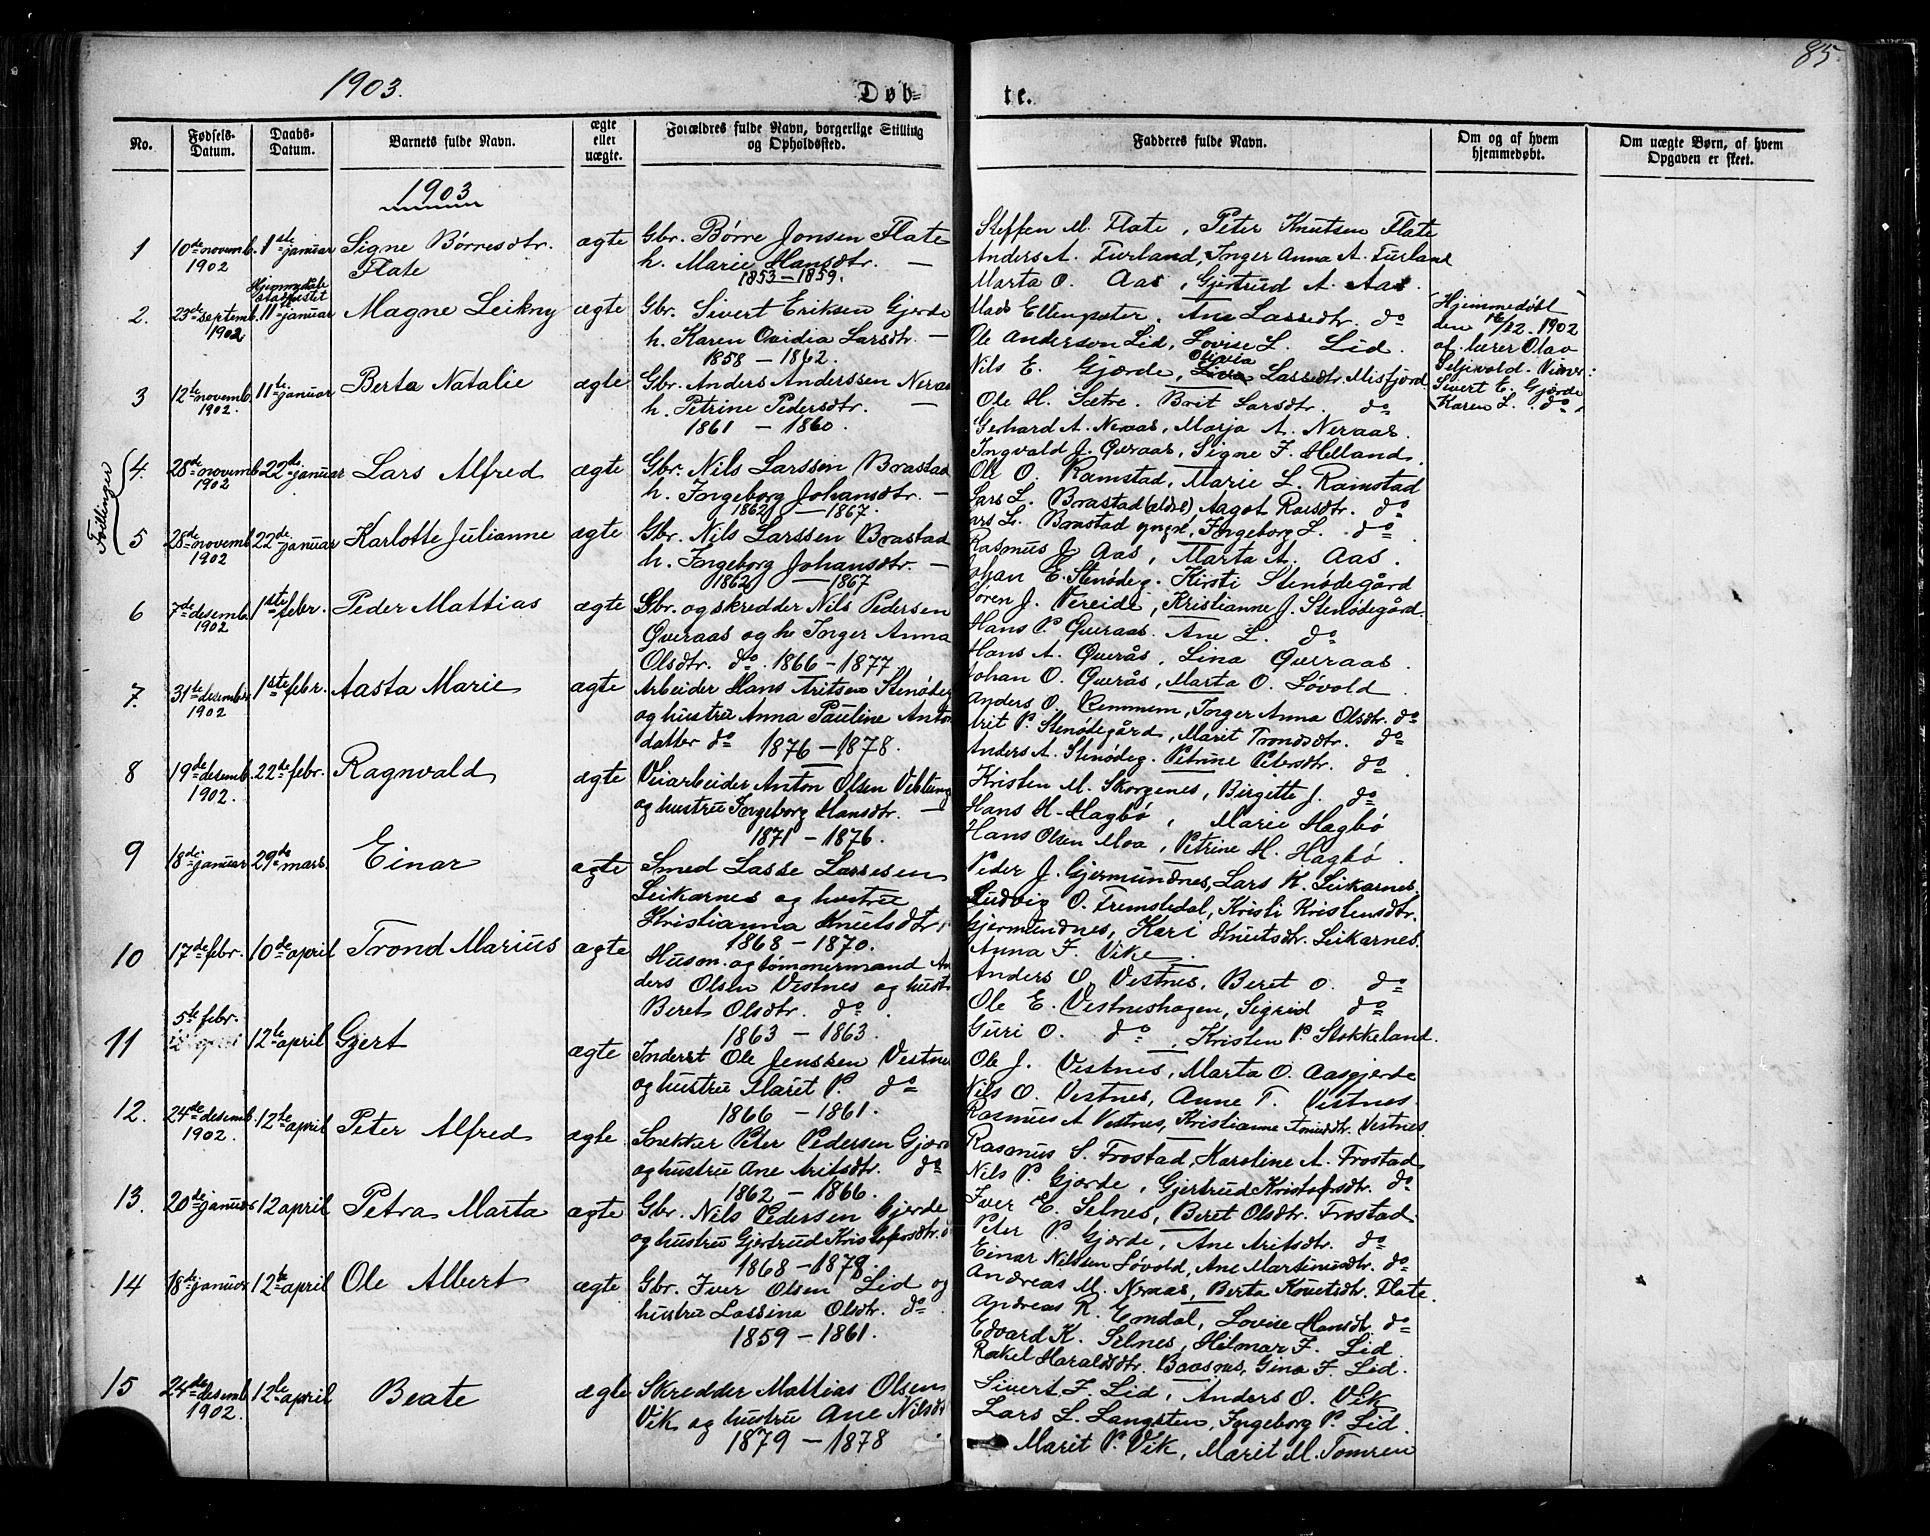 1903.
Døb=
te.
85.
No.
Fødsels-
Datum.
Daabs-
Datum.
Barnets fulde Navn.
ægte
eller
uægte.
Forældres fulde Navn, borgerlige Stilling
og Opholdssted.
Fadderes fulde Navn.
Om og af hvem
hjemmedøbt.
Om uægte Børn, af hvem
Opgaven er skeet.
1903
1
10de novemb.
1902
1ste januar
Signe Børresdtr.
Flate
ægte
Gbr. Børre Jonsen Flate
h. Marie Hansdtr. —
1853 — 1859.
Steffen M. Flate, Peter Knutsen Flate
Anders A. Furland, Inger Anna A. Furland
Marta O. Aas, Gjertrud A. Aas.
2.
23de septemb.
1902
Hjemmedåb
stadfestet
11te januar
Magne Leikny
ægte
Gbr. Sivert Eriksen Gjerde
h. Karen Ovidia Larsdtr. —
1858 — 1862.
Mads Ellenpeter. Ane Lassedtr. do
Ole Anderson Lid, Lovise L. Lid.
Nils E. Gjørde, Olivia Lassedtr. Misfjord
Ole H. Sætre. Brit Larsdtr. do
Hjemmedøbt
den 16/12 - 1902
af lærer Olav
Seljevold. Vidner:
Sivert E. Gjørde
Karen L. do
3
12te novemb.
1902.
11te januar
Berta Natalie
ægte
Gbr. Anders Anderssen Neraas
h. Petrine Pedersdtr. —
1861 — 1860.
Gerhard A. Neraas, Marja A. Neraas.
Ingvald J. Øveraas, Signe F. Helland.
Tvillinger
4.
28de novemb.
1902
22de januar
Lars Alfred
ægte
Gbr. Nils Larssen Brastad
h. Ingeborg Johansdtr. —
1862 — 1867.
Ole O. Ramstad, Marie L. Ramstad
Lars L. Brastad (eldre) Aagot Roesdtr. do
5
28de novemb.
1902
22de januar
Karlotte Julianne
ægte
Gbr. Nils Larssen Brastad
h. Ingeborg Johansdtr. —
1862 — 1867
Lars L. Brastad yngre, Ingeborg L. do
Rasmus J. Aas, Marta A. Aas.
6
7de desemb.
1902
1ste febr.
Peder Mattias
ægte
Gbr. og skredder Nils Pedersen
Øveraas og h. Inger Anna
Olsdtr. do. 1866 - 1877.
Johan E. Stenødeg. Kirsti Stenødegård
Søren J. Vereide, Kristianne J. Stenødegård.
Hans P. Øveraas. Ane L. do
Hans A. Øverås, Lina Øveraas.
7.
31te desember
1902
1ste febr.
Aasta Marie
ægte
Arbeider Hans Aritsen Stenødeg
og hustru Anna Pauline Anton
datter do 1876 — 1878.
Johan O. Øverås, Marta O. Løvold.
Anders O. Remmem, Inger Anna Olsdtr. do
Arit P. Stenødegård, Marit Trondsdtr. do
Anders A. Stenødeg. Petrine Petersdtr. do
8
19de desemb.
1902.
22de febr.
Ragnvald
ægte
Veiarbeider Anton Olsen Veblung
og hustru Ingeborg Hansdtr. —
1871 — 1876.
Kristen M. Skorgenes, Birgitte J. do
Hans H. Hagbø, Marie Hagbø
Hans Olsen Moa, Petrine H. Hagbø.
9
18de januar
29de mars.
Einar
ægte
Smed Lasse Lassesen
Leikarnes og hustru
Kristianna Knutsdtr.
1868 — 1870.
Peder J. Gjermundnes, Lars K. Leikarnes.
Ludvig O. Fremstedal, Kristi Kristensdtr.
Gjermundnes, Kari Knutsdtr. Leikarnes.
Anna F. Vike.
10
17de febr.
10de april
Trond Marius
ægte
Husm. og tømmermand An
ders Olsen Vestnes og hust
Beret Olsdtr. do.
1863 — 1863.
Anders O. Vestnes, Beret O. do
Ole E. Vestneshagen, Sigrid do
Guri O. do, Kristen P. Stokkeland.
11
5te febr.
12te april
Gjert
ægte
Inderst Ole Jenssen Vestnes
og hustru Maret P. do
1866 — 1861.
Ole J. Vestnes, Marta O. Aasgjerde
Nils O. Vestnes, Anne T. Vestnes.
Rasmus A Vestnes, Kristianne Amundtr. Vestnes.
12.
24de desemb.
1902.
12te april
Peter Alfred
ægte
Snekker Peter Pedersen Gjørd
og hustru Ane Aritsdtr. do
1862 — 1866.
Rasmus S. Frostad, Karoline A. Frostad
Nils P. Gjørde, Gjertrud Kristofersdtr. do
Iver E. Selnes, Beret Olsdtr. Frostad.
13.
20de januar
12 april
Petra Marta
ægte
Gbr. Nils Pedersen Gjerde
og hustru Gjertrud Kristofersdtr.
1868 — 1878
Peter P. Gjørde, Ane Aritsdtr. do
Einar Nilssen Løvold, Ane Martinusdtr. do
Andreas M. Neraas, Berta Knutsdtr. Flate.
14
18de januar
12te april
Ole Albert
ægte
Gbr. Iver Olsen Lid og
hustru Lassina Olsdtr. do.
1859 — 1861.
Andreas K. Emdal, Lovise Hansdtr. do
Edvard K. Selnes, Hilmar F. Lid
Rakel Haraldsdtr. Baasnes, Gina F. Lid.
15
24de desemb.
1902.
12te april
Beate
ægte
Skredder Mattias Olsen
Vik og hustru Ane Nilsdt
1879 — 1878
Sivert F. Lid, Anders O. Vik
Lars L. Langsten, Ingeborg P. Lid.
Marit P. Vik, Marit M. Tomren